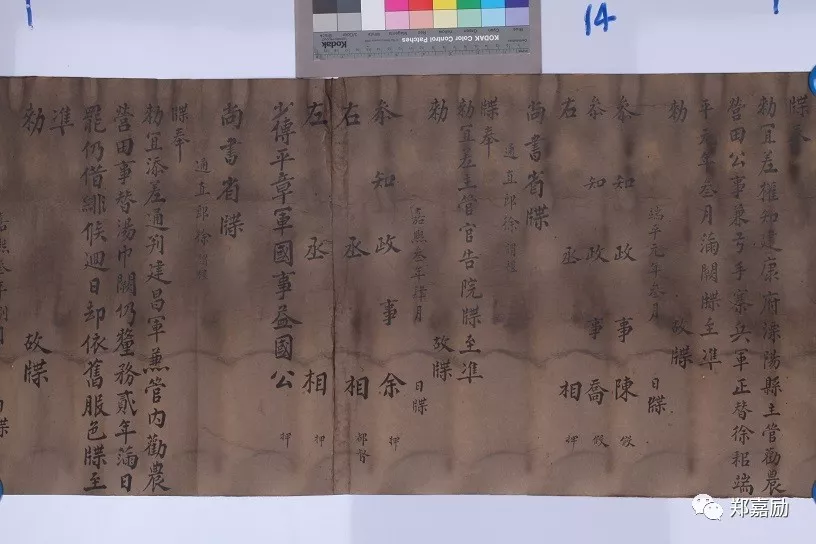 牒奉
勑宜差權知建康府溧陽縣主管勸農
營田公事兼弓手寨兵軍正替徐耜端
平元年叁月滿闕牒至準
勑 故牒
端平元年叁月 日牒
叅知政事陳 假
叅知政事喬 假
右丞相 押
尚書省牒
通直郎徐謂禮
牒奉
勑宜差主管官告院牒至準
勑 故牒
嘉熙叁年肆月 日牒
叅知政事余 押
右丞相 都督
左丞相 押
少傅平章軍國事益國公 押
尚書省牒
通直郎徐謂禮
牒奉
勑宜添差通判建昌軍兼管內勸農
營田事替湯巾闕仍釐務貳年滿日
罷仍借緋候迴日却依舊服色牒至
準
勑 故牒
嘉熙叁年 月 日牒
Kodak
KODAK Color Control Patches
14
郑嘉励